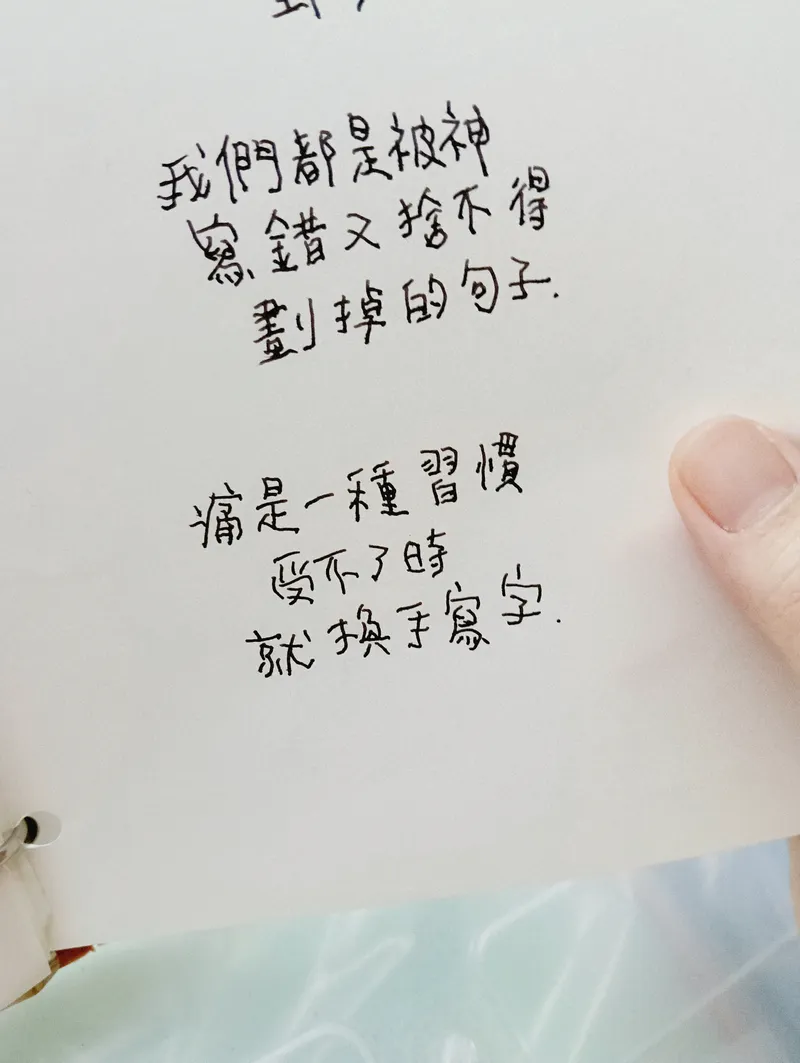 我們都是被神
寫錯又捨不得
劃掉的句子.
痛是一種習慣
受不了時
就換手寫字.